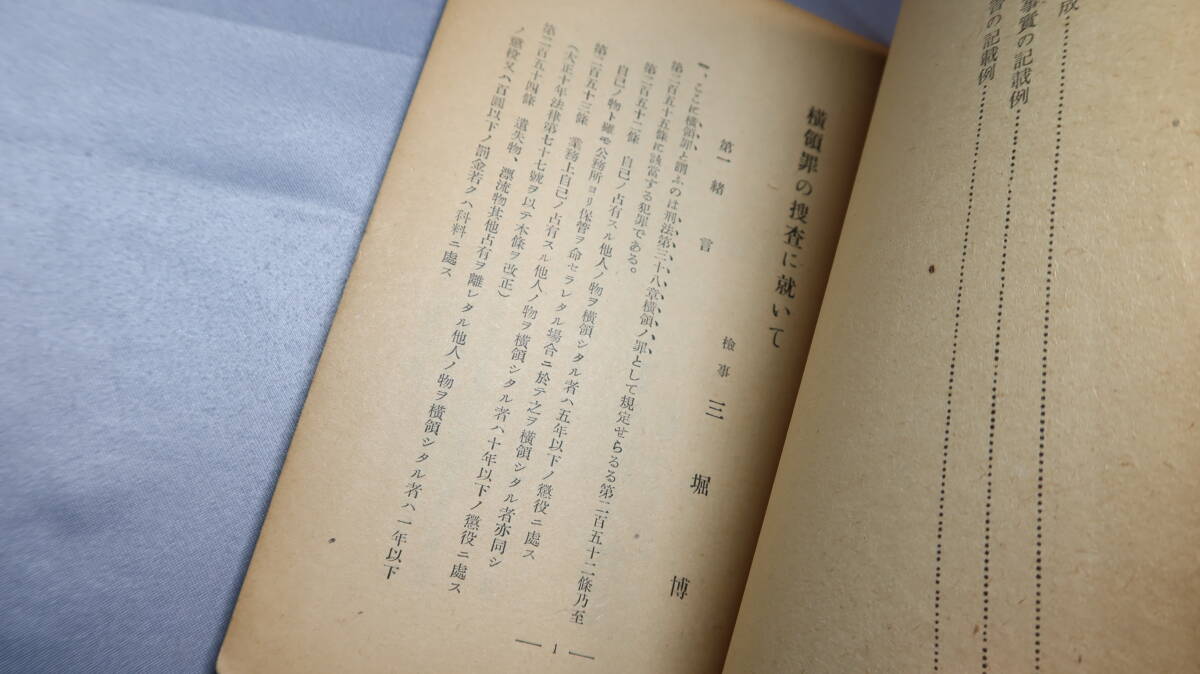 成
事實の記載例
書の記載例
橫領罪の搜査に就いて
檢事 三堀博
第一 緖言
一、ここに橫領罪と謂ふのは刑法第三十八章橫領ノ罪として規定せらるる第二百五十二條乃至
第二百五十五條に該當する犯罪である。
第二百五十二條 自己ノ占有スル他人ノ物ヲ橫領シタル者ハ五年以下ノ懲役ニ處ス
自己ノ物ト雖モ公務所ヨリ保管ヲ命セラレタル場合ニ於テ之ヲ橫領シタル者亦同シ
第二百五十三條 業務上自己ノ占有スル他人ノ物ヲ橫領シタル者ハ十年以下ノ懲役ニ處ス
(大正十年法律第七十七號ヲ以テ本條ヲ改正)
第二百五十四條 遺失物、漂流物其他占有ヲ離レタル他人ノ物ヲ橫領シタル者ハ一年以下
ノ懲役又ハ百圓以下ノ罰金若クハ科料ニ處ス
— 1 —